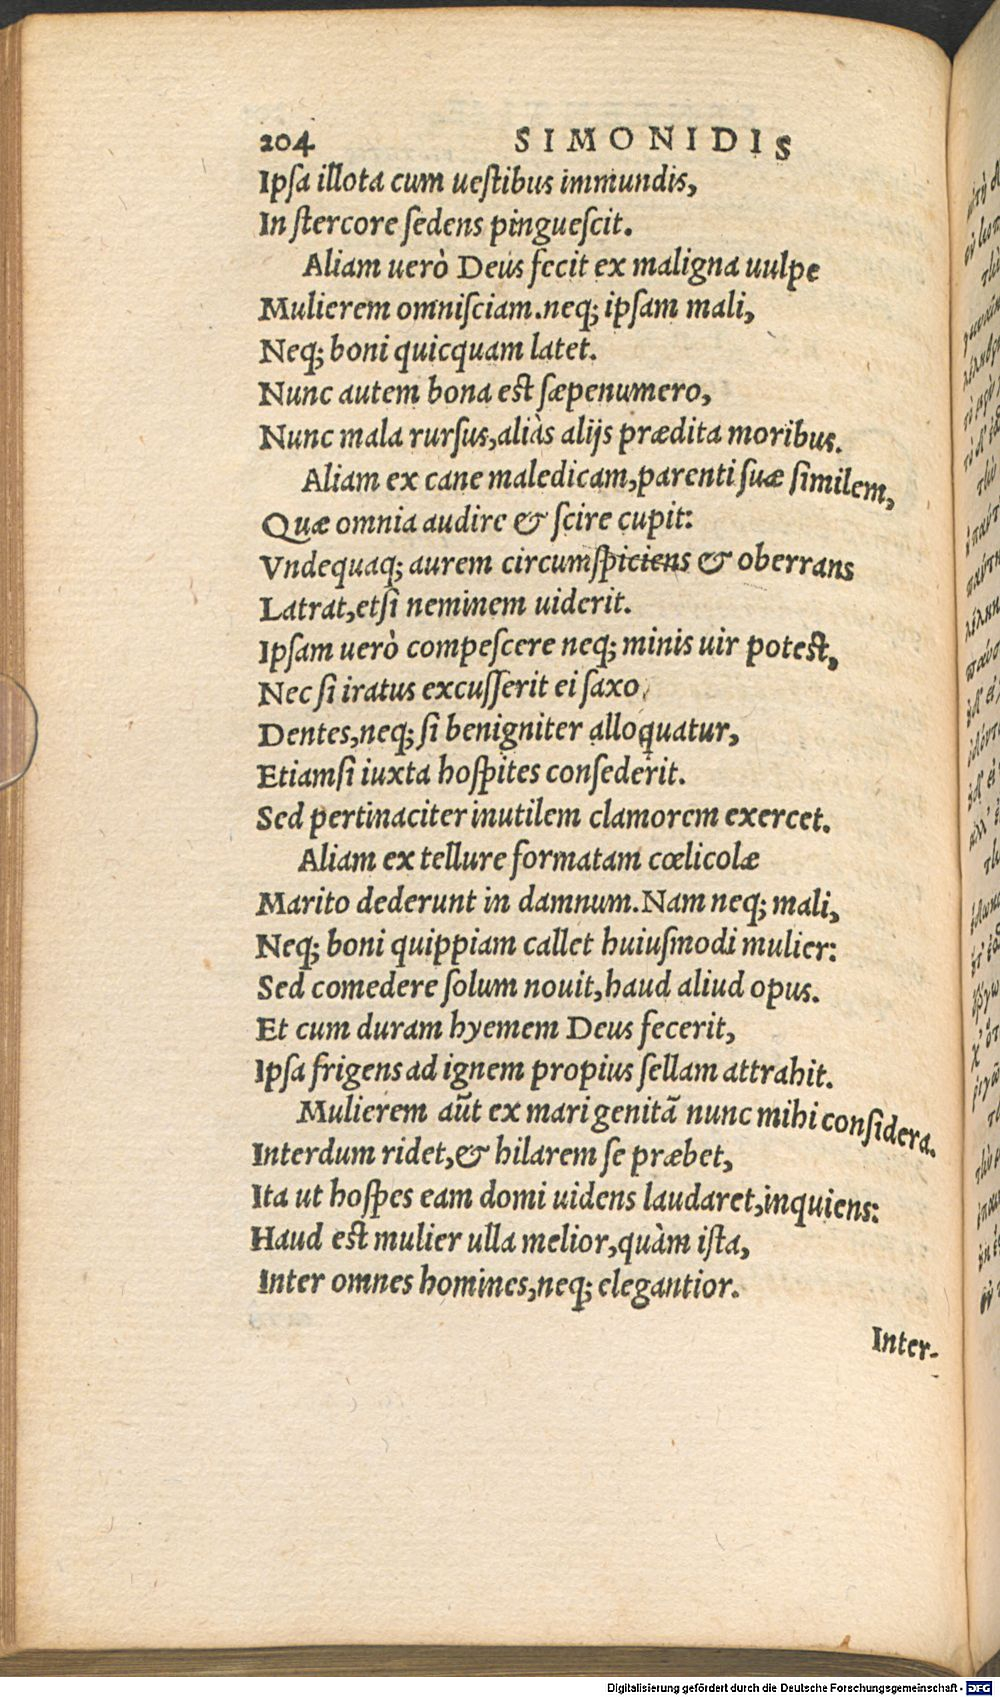 204 SIMONIDIS
Ipſa illota cum ueſtibus immundis,
In ſtercore ſedens pingueſcit.
Aliam uerò Deus fecit ex maligna uulpe
Mulierem omniſciam.neq; ipſam mali,
Neq; boni quicquam latet.
Nunc autem bona eſt ſæpenumero,
Nunc mala rurſus,aliàs alijs prædita moribus.
Aliam ex cane maledicam,parenti ſuæ ſimilem,
Quæ omnia audire & ſcire cupit:
Vndequaq; aurem circumſpiciens & oberrans
Latrat,etſi neminem uiderit.
Ipſam uerò compeſcere neq; minis uir poteſt,
Nec ſi iratus excuſſerit ei ſaxo
Dentes,neq; ſi benigniter alloquatur,
Etiamſi iuxta hoſpites conſederit.
Sed pertinaciter inutilem clamorem exercet.
Aliam ex tellure formatam cœlicolæ
Marito dederunt in damnum.Nam neq; mali,
Neq; boni quippiam callet huiuſmodi mulier:
Sed comedere ſolum nouit,haud aliud opus.
Et cum duram hyemem Deus fecerit,
Ipſa frigens ad ignem propius ſellam attrahit.
Mulierem aūt ex mari genitā nunc mihi conſidera.
Interdum ridet,& hilarem ſe præbet,
Ita ut hoſpes eam domi uidens laudaret,inquiens:
Haud eſt mulier ulla melior,quàm iſta,
Inter omnes homines,neq; elegantior.
Inter-
Digitalisierung gefördert durch die Deutsche Forschungsgemeinschaft - DFG